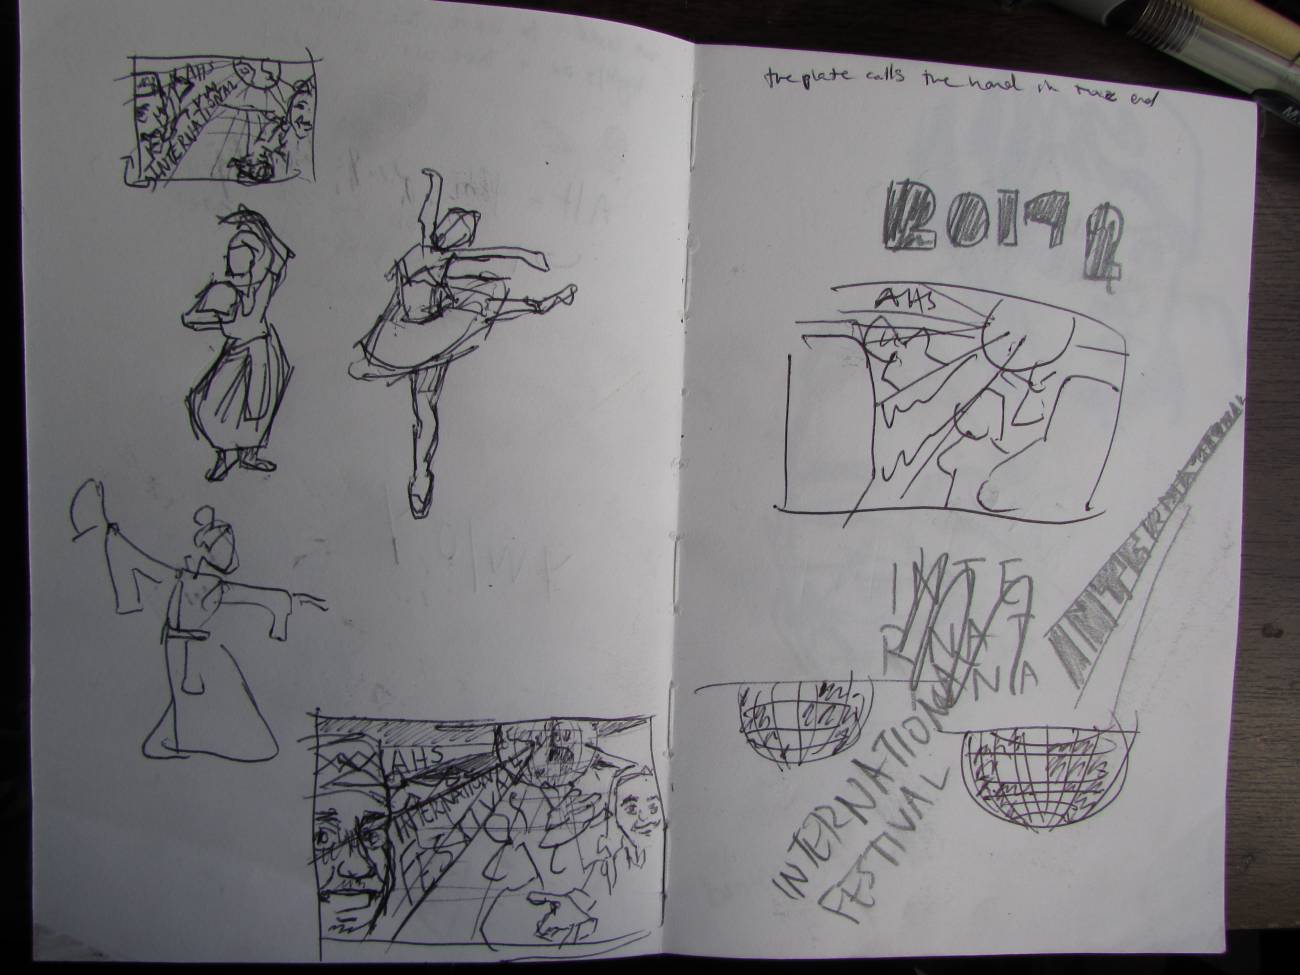 AHS
INTERNATIONAL
AHS
INTERNATIONAL
FESTIVAL
the plate calls the hand in the end
2019 2
AHS
INTERNATIONAL
INTE
RNAT
IONA
INTERNATIONAL
FESTIVAL